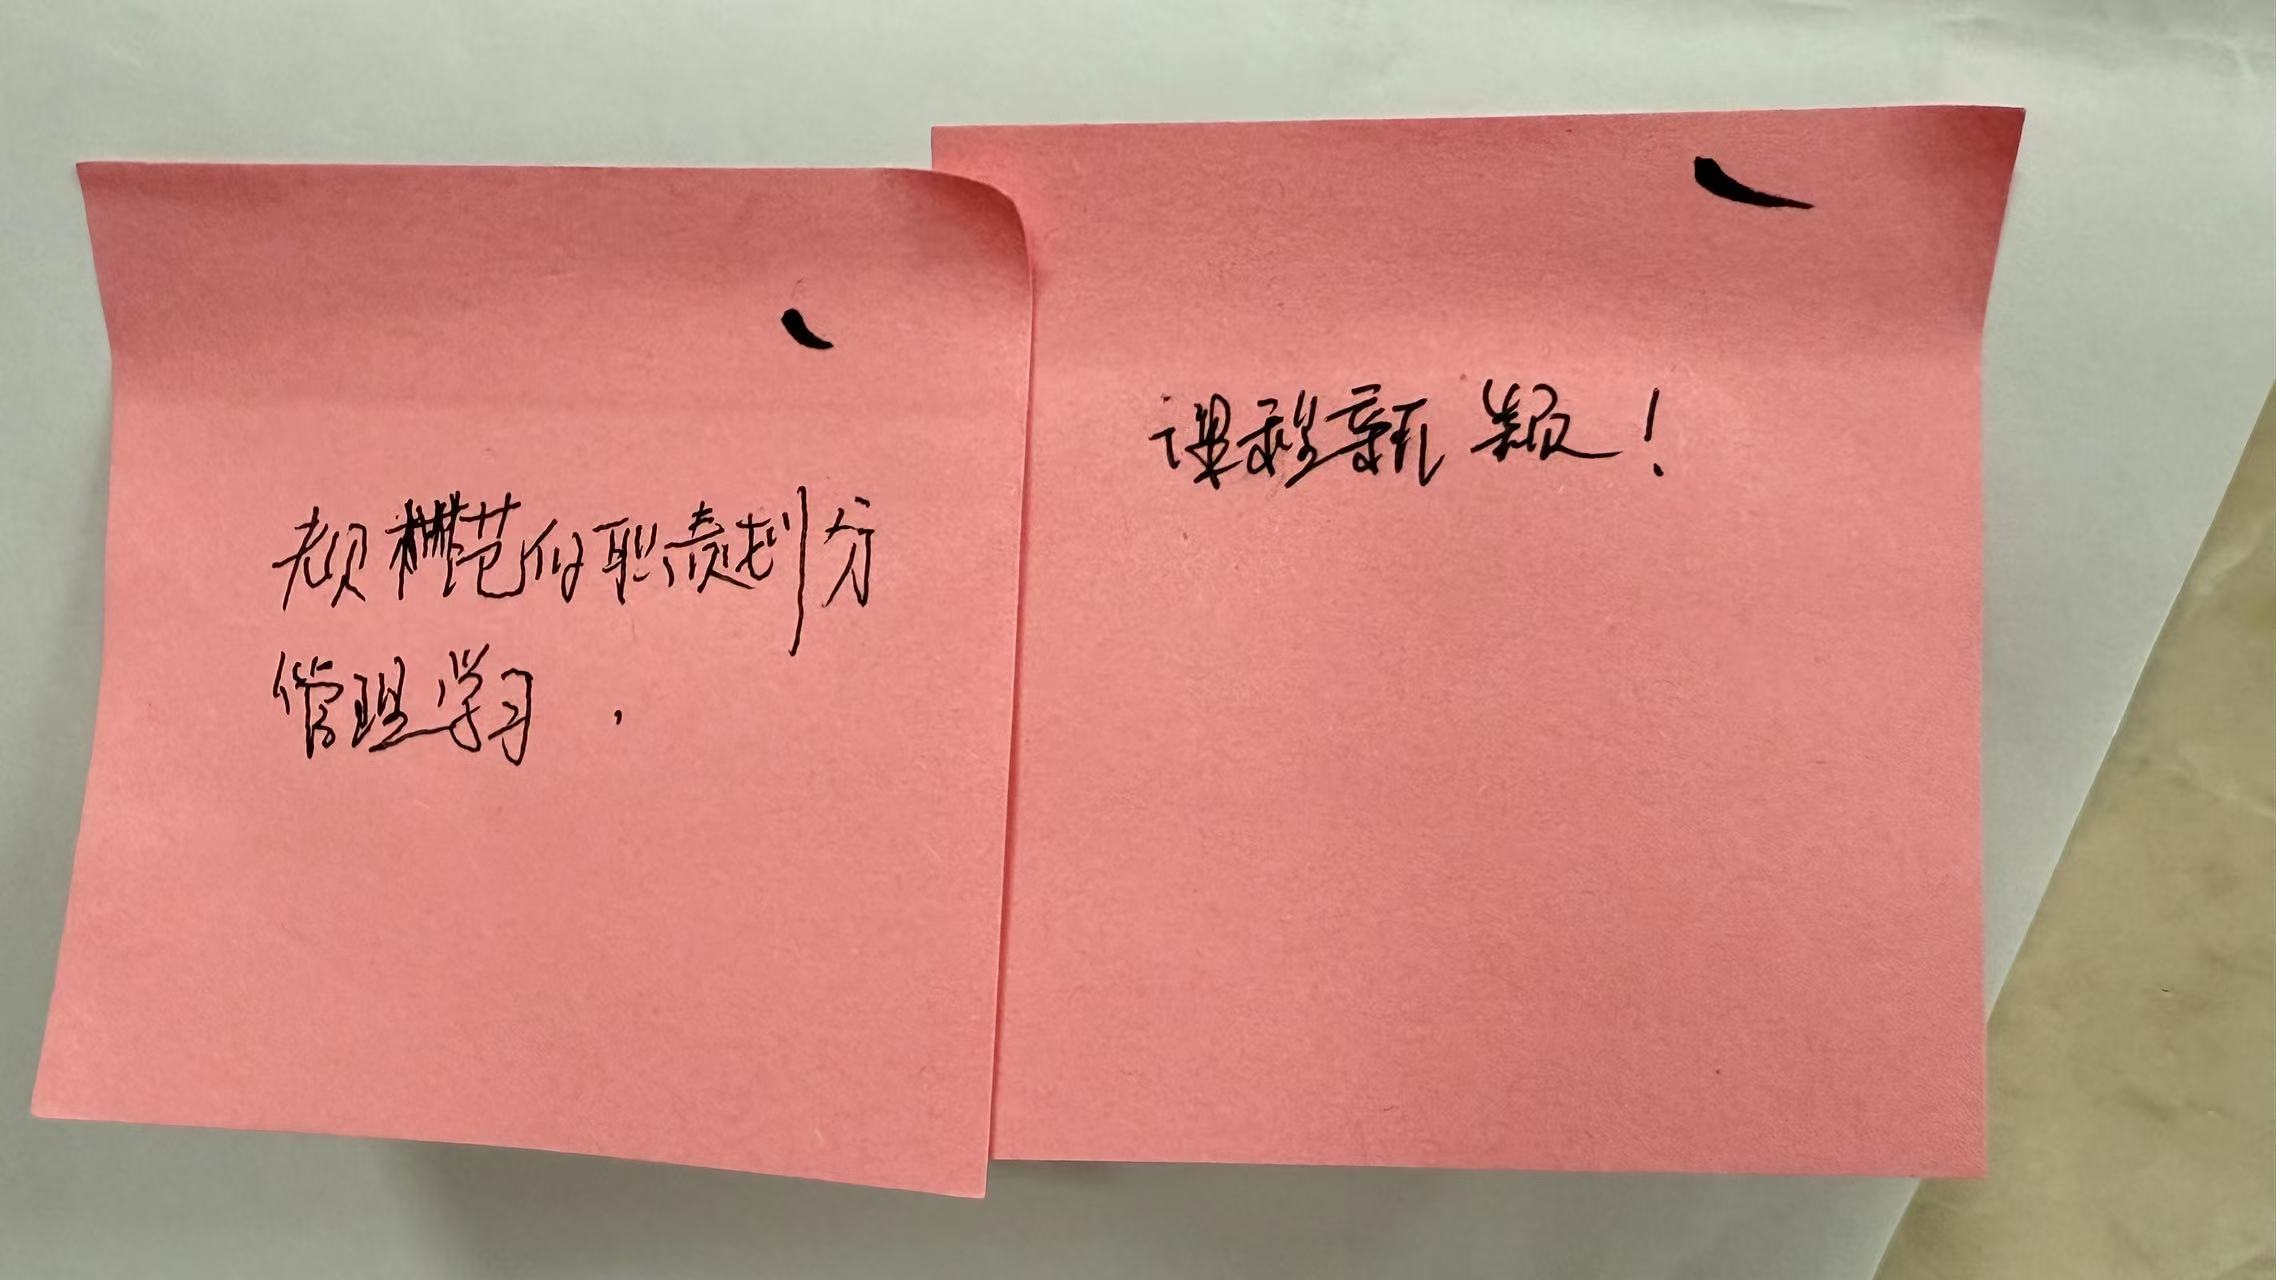 规范的职责划分
管理学习.
课程新颖!